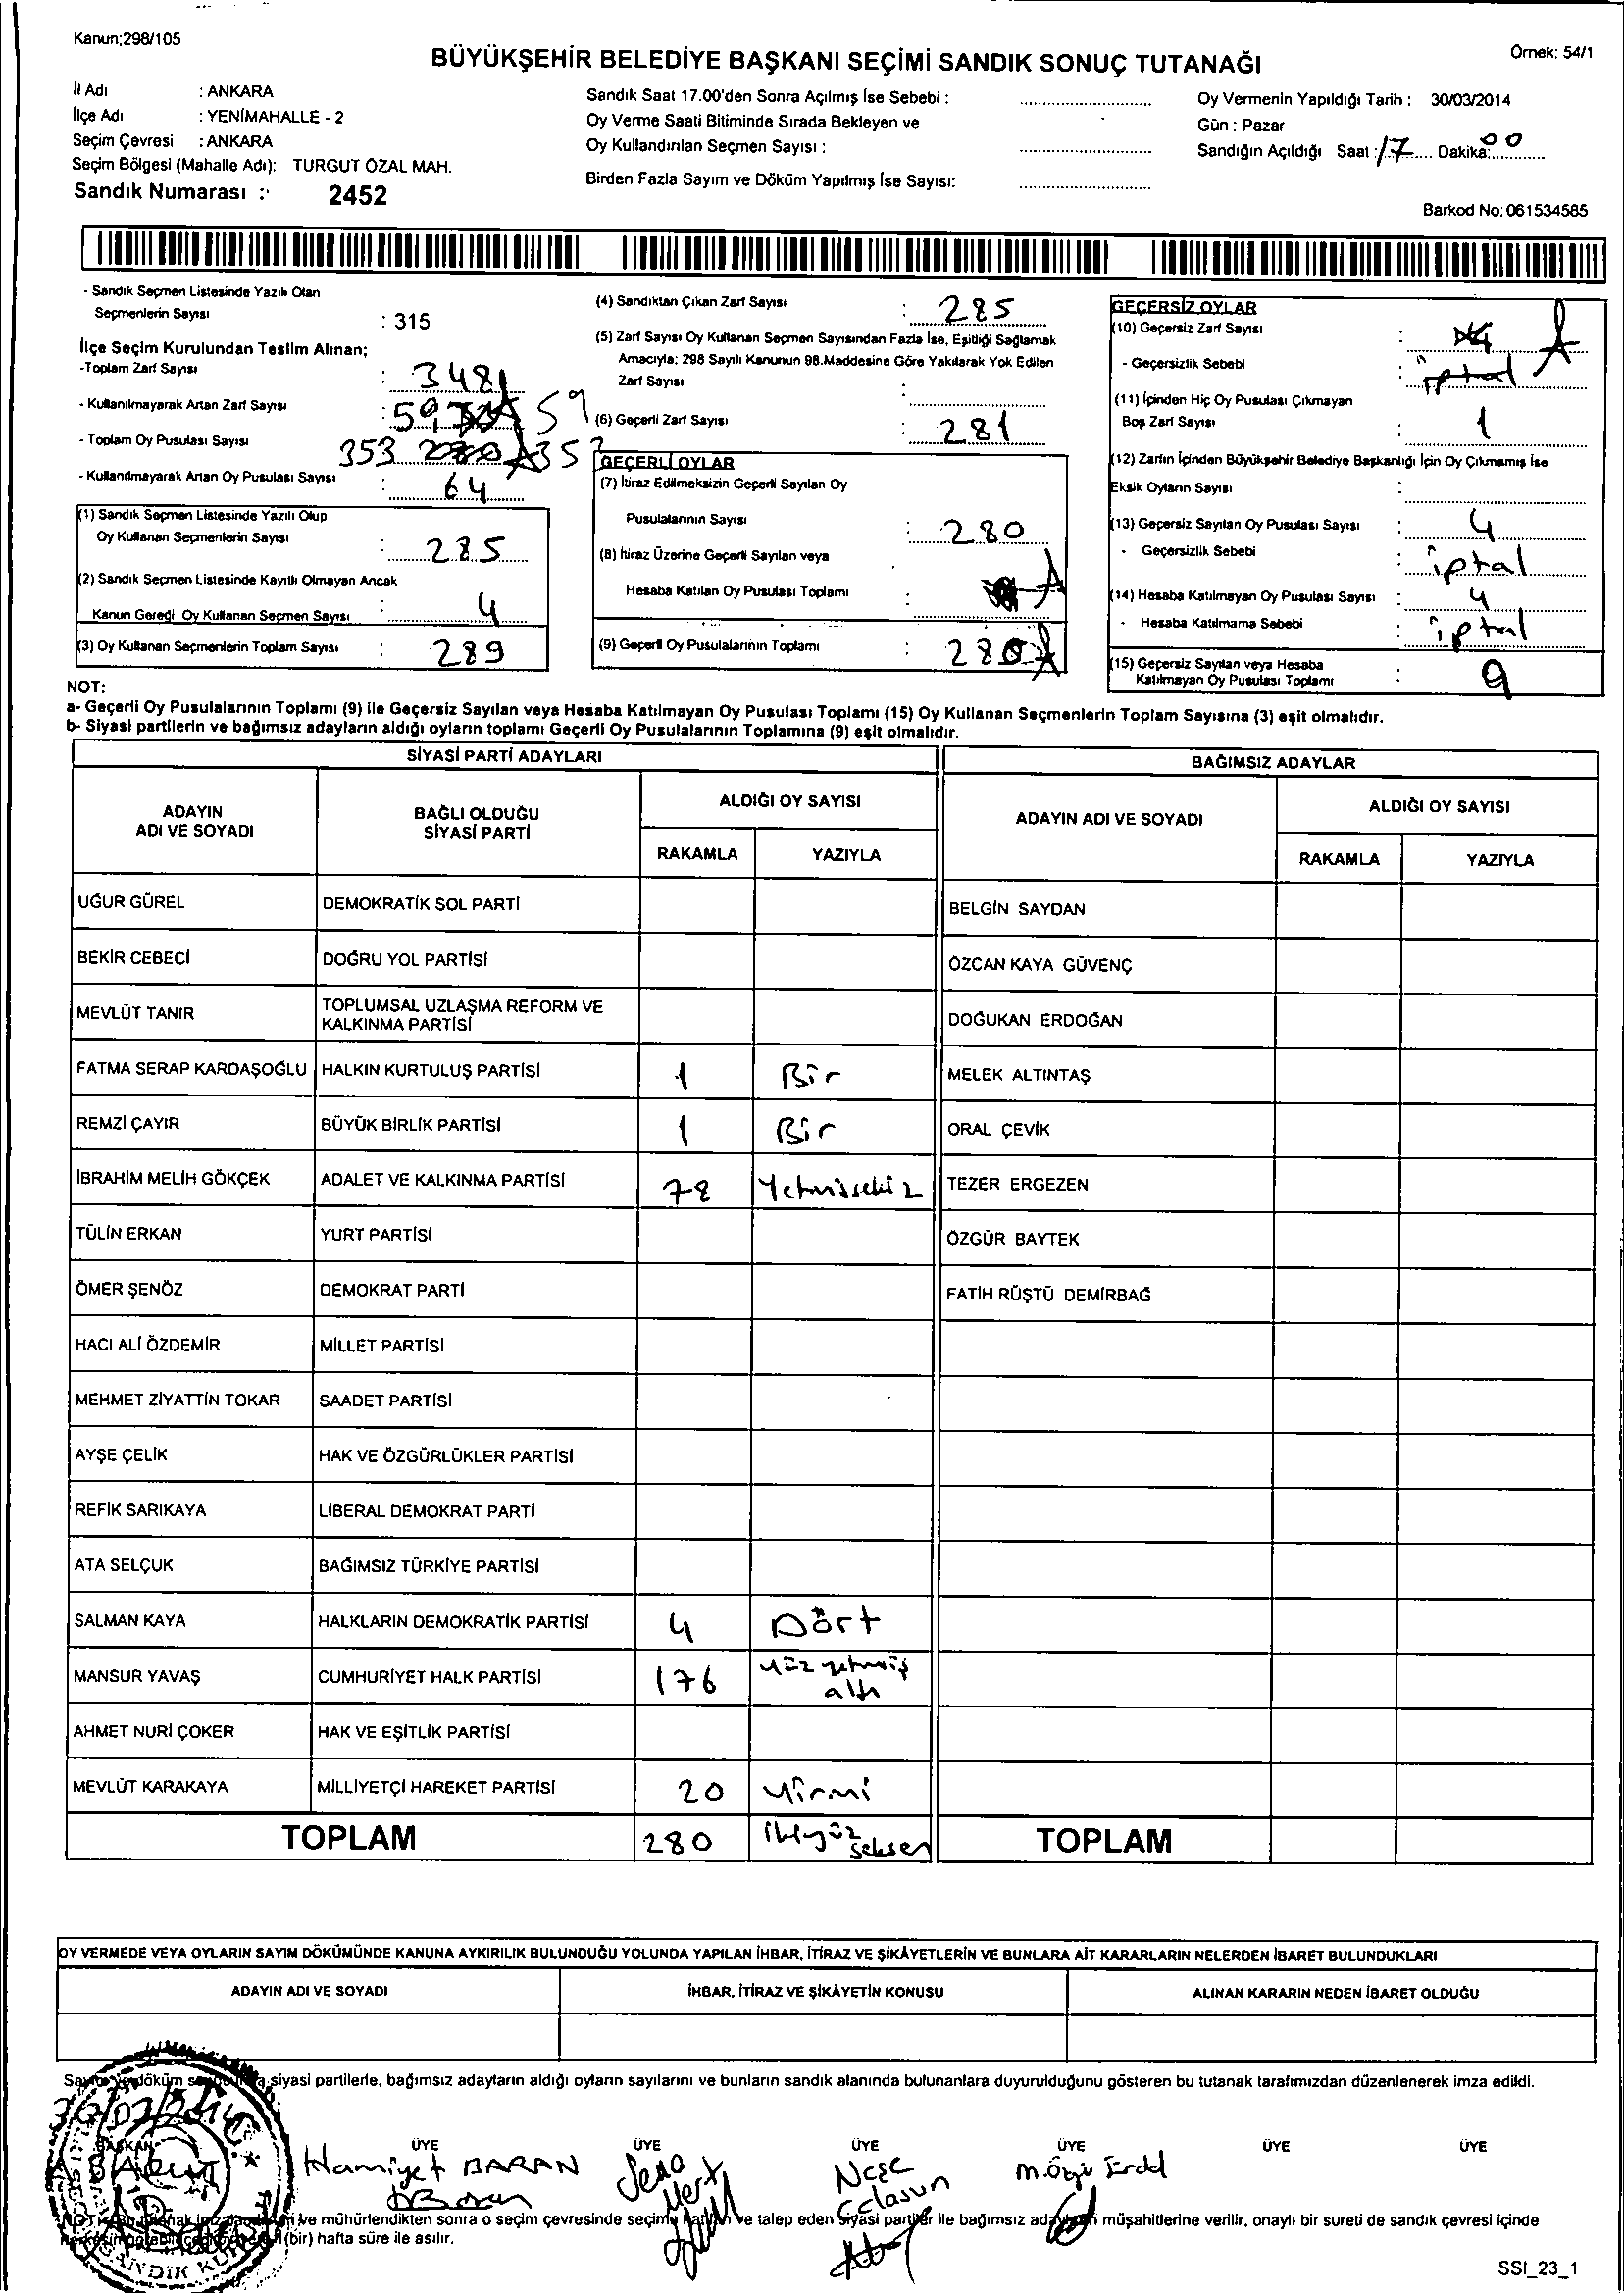 Kanun;298/105
Örnek: 54/1
BÜYÜKŞEHİR BELEDİYE BAŞKANI SEÇİMİ SANDIK SONUÇ TUTANAĞI
İl Adı : ANKARA
İlçe Adı : YENİMAHALLE - 2
Seçim Çevresi : ANKARA
Seçim Bölgesi (Mahalle Adı): TURGUT ÖZAL MAH.
Sandık Numarası : 2452
Sandık Saat 17.00'den Sonra Açılmış İse Sebebi :
Oy Verme Saati Bitiminde Sırada Bekleyen ve
Oy Kullandırılan Seçmen Sayısı :
Birden Fazla Sayım ve Döküm Yapılmış İse Sayısı:
Oy Vermenin Yapıldığı Tarih : 30/03/2014
Gün : Pazar
Sandığın Açıldığı Saat : 17 Dakika: 00
Barkod No: 061534585
- Sandık Seçmen Listesinde Yazılı Olan
Seçmenlerin Sayısı : 315
İlçe Seçim Kurulundan Teslim Alınan;
-Toplam Zarf Sayısı : 348
- Kullanılmayarak Artan Zarf Sayısı : 59 59
- Toplam Oy Pusulası Sayısı 353 353
- Kullanılmayarak Artan Oy Pusulası Sayısı : 64
(1) Sandık Seçmen Listesinde Yazılı Olup
Oy Kullanan Seçmenlerin Sayısı : 285
(2) Sandık Seçmen Listesinde Kayıtlı Olmayan Ancak
Kanun Gereği Oy Kullanan Seçmen Sayısı : 4
(3) Oy Kullanan Seçmenlerin Toplam Sayısı : 289
(4) Sandıktan Çıkan Zarf Sayısı : 285
(5) Zarf Sayısı Oy Kullanan Seçmen Sayısından Fazla İse, Eşitliği Sağlamak
Amacıyla; 298 Sayılı Kanunun 98.Maddesine Göre Yakılarak Yok Edilen
Zarf Sayısı :
(6) Geçerli Zarf Sayısı : 281
GEÇERLİ OYLAR
(7) İtiraz Edilmeksizin Geçerli Sayılan Oy
Pusulalarının Sayısı : 280
(8) İtiraz Üzerine Geçerli Sayılan veya
Hesaba Katılan Oy Pusulası Toplamı :
(9) Geçerli Oy Pusulalarının Toplamı : 280
GEÇERSİZ OYLAR
(10) Geçersiz Zarf Sayısı :
- Geçersizlik Sebebi : iptal
(11) İçinden Hiç Oy Pusulası Çıkmayan
Boş Zarf Sayısı : 1
(12) Zarfın İçinden Büyükşehir Belediye Başkanlığı İçin Oy Çıkmamış İse
Eksik Oyların Sayısı :
(13) Geçersiz Sayılan Oy Pusulası Sayısı : 4
- Geçersizlik Sebebi : iptal
(14) Hesaba Katılmayan Oy Pusulası Sayısı : 4
- Hesaba Katılmama Sebebi : iptal
(15) Geçersiz Sayılan veya Hesaba
Katılmayan Oy Pusulası Toplamı : 9
NOT:
a- Geçerli Oy Pusulalarının Toplamı (9) ile Geçersiz Sayılan veya Hesaba Katılmayan Oy Pusulası Toplamı (15) Oy Kullanan Seçmenlerin Toplam Sayısına (3) eşit olmalıdır.
b- Siyasi partilerin ve bağımsız adayların aldığı oyların toplamı Geçerli Oy Pusulalarının Toplamına (9) eşit olmalıdır.
SİYASİ PARTİ ADAYLARI
BAĞIMSIZ ADAYLAR
ADAYIN ADI VE SOYADI
BAĞLI OLDUĞU SİYASİ PARTİ
ALDIĞI OY SAYISI
RAKAMLA YAZIYLA
ADAYIN ADI VE SOYADI
ALDIĞI OY SAYISI
RAKAMLA YAZIYLA
UĞUR GÜREL DEMOKRATİK SOL PARTİ BELGİN SAYDAN
BEKİR CEBECİ DOĞRU YOL PARTİSİ ÖZCAN KAYA GÜVENÇ
MEVLÜT TANIR TOPLUMSAL UZLAŞMA REFORM VE KALKINMA PARTİSİ DOĞUKAN ERDOĞAN
FATMA SERAP KARDAŞOĞLU HALKIN KURTULUŞ PARTİSİ 1 Bir MELEK ALTINTAŞ
REMZİ ÇAYIR BÜYÜK BİRLİK PARTİSİ 1 Bir ORAL ÇEVİK
İBRAHİM MELİH GÖKÇEK ADALET VE KALKINMA PARTİSİ 78 Yetmişsekiz TEZER ERGEZEN
TÜLİN ERKAN YURT PARTİSİ ÖZGÜR BAYTEK
ÖMER ŞENÖZ DEMOKRAT PARTİ FATİH RÜŞTÜ DEMİRBAĞ
HACI ALİ ÖZDEMİR MİLLET PARTİSİ
MEHMET ZİYATTİN TOKAR SAADET PARTİSİ
AYŞE ÇELİK HAK VE ÖZGÜRLÜKLER PARTİSİ
REFİK SARIKAYA LİBERAL DEMOKRAT PARTİ
ATA SELÇUK BAĞIMSIZ TÜRKİYE PARTİSİ
SALMAN KAYA HALKLARIN DEMOKRATİK PARTİSİ 4 Dört
MANSUR YAVAŞ CUMHURİYET HALK PARTİSİ 176 Yüz yetmiş altı
AHMET NURİ ÇOKER HAK VE EŞİTLİK PARTİSİ
MEVLÜT KARAKAYA MİLLİYETÇİ HAREKET PARTİSİ 20 Yirmi
TOPLAM 280 İkiyüz seksen TOPLAM
OY VERMEDE VEYA OYLARIN SAYIM DÖKÜMÜNDE KANUNA AYKIRILIK BULUNDUĞU YOLUNDA YAPILAN İHBAR, İTİRAZ VE ŞİKÂYETLERİN VE BUNLARA AİT KARARLARIN NELERDEN İBARET BULUNDUKLARI
ADAYIN ADI VE SOYADI İHBAR, İTİRAZ VE ŞİKÂYETİN KONUSU ALINAN KARARIN NEDEN İBARET OLDUĞU
siyasi partilerle, bağımsız adayların aldığı oyların sayılarını ve bunların sandık alanında bulunanlara duyurulduğunu gösteren bu tutanak tarafımızdan düzenlenerek imza edildi.
BAŞKAN ÜYE ÜYE ÜYE ÜYE ÜYE ÜYE
Hamiyet BARAN Neşe
ve mühürlendikten sonra o seçim çevresinde seçime ve talep eden siyasi partiler ile bağımsız müşahitlerine verilir, onaylı bir sureti de sandık çevresi içinde
(bir) hafta süre ile asılır.
SSI_23_1